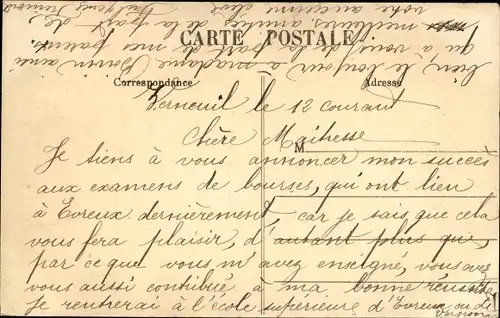 CARTE POSTALE
Correspondance
Adresse
M
Verneuil le 12 courant
Chère Maîtresse
Je tiens à vous annoncer mon succès
aux examens de bourses, qui ont lieu
à Evreux dernièrement, car je sais que cela
vous fera plaisir, d'autant plus que,
par ce que vous m'avez enseigné, vous avez
vous aussi contribué à ma bonne réussite
je rentrerai à l'école supérieure d'Evreux ou de
Vernon
bien le bonjour à madame ainsi
qu'à vous de la part de mes parents.
meilleures amitiés de la part de
votre ancien